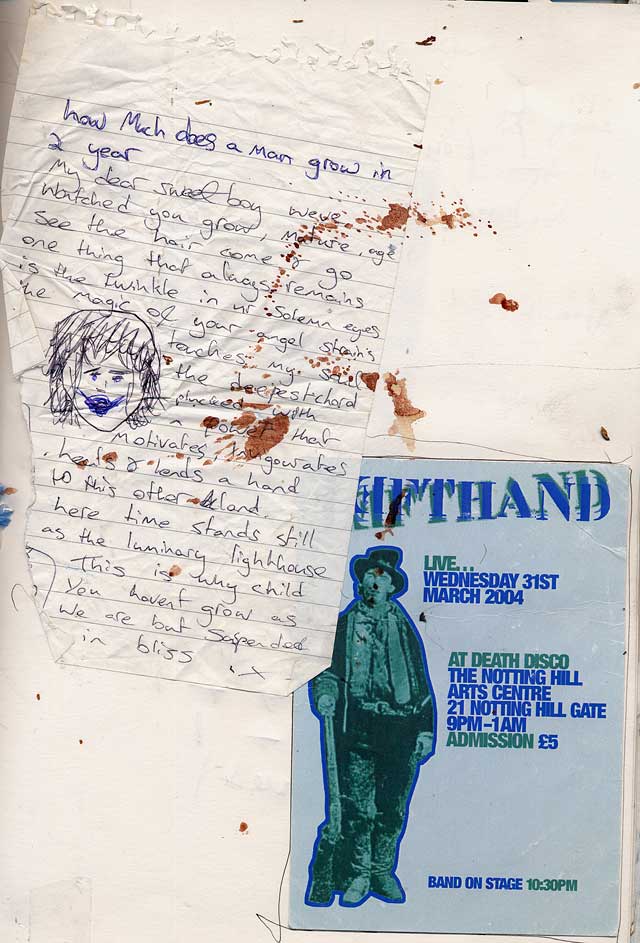 how Much does a Man grow in
2 year
My dear sweet boy weve
watched you grow, mature, age
See the hair come & go
one thing that always remains
is the twinkle in ur solemn eyes
the magic of your angel strains
touches my soul
the deepest chord
plucked with
a power that
Motivates invigourates
heals & lends a hand
to this other land.
here time stands still
as the luminary lighthouse
This is why child
You havent grow as
We are but Suspended
in bliss X
IFTHAND
LIVE...
WEDNESDAY 31ST
MARCH 2004
AT DEATH DISCO
THE NOTTING HILL
ARTS CENTRE
21 NOTTING HILL GATE
9PM-1AM
ADMISSION £5
BAND ON STAGE 10:30PM